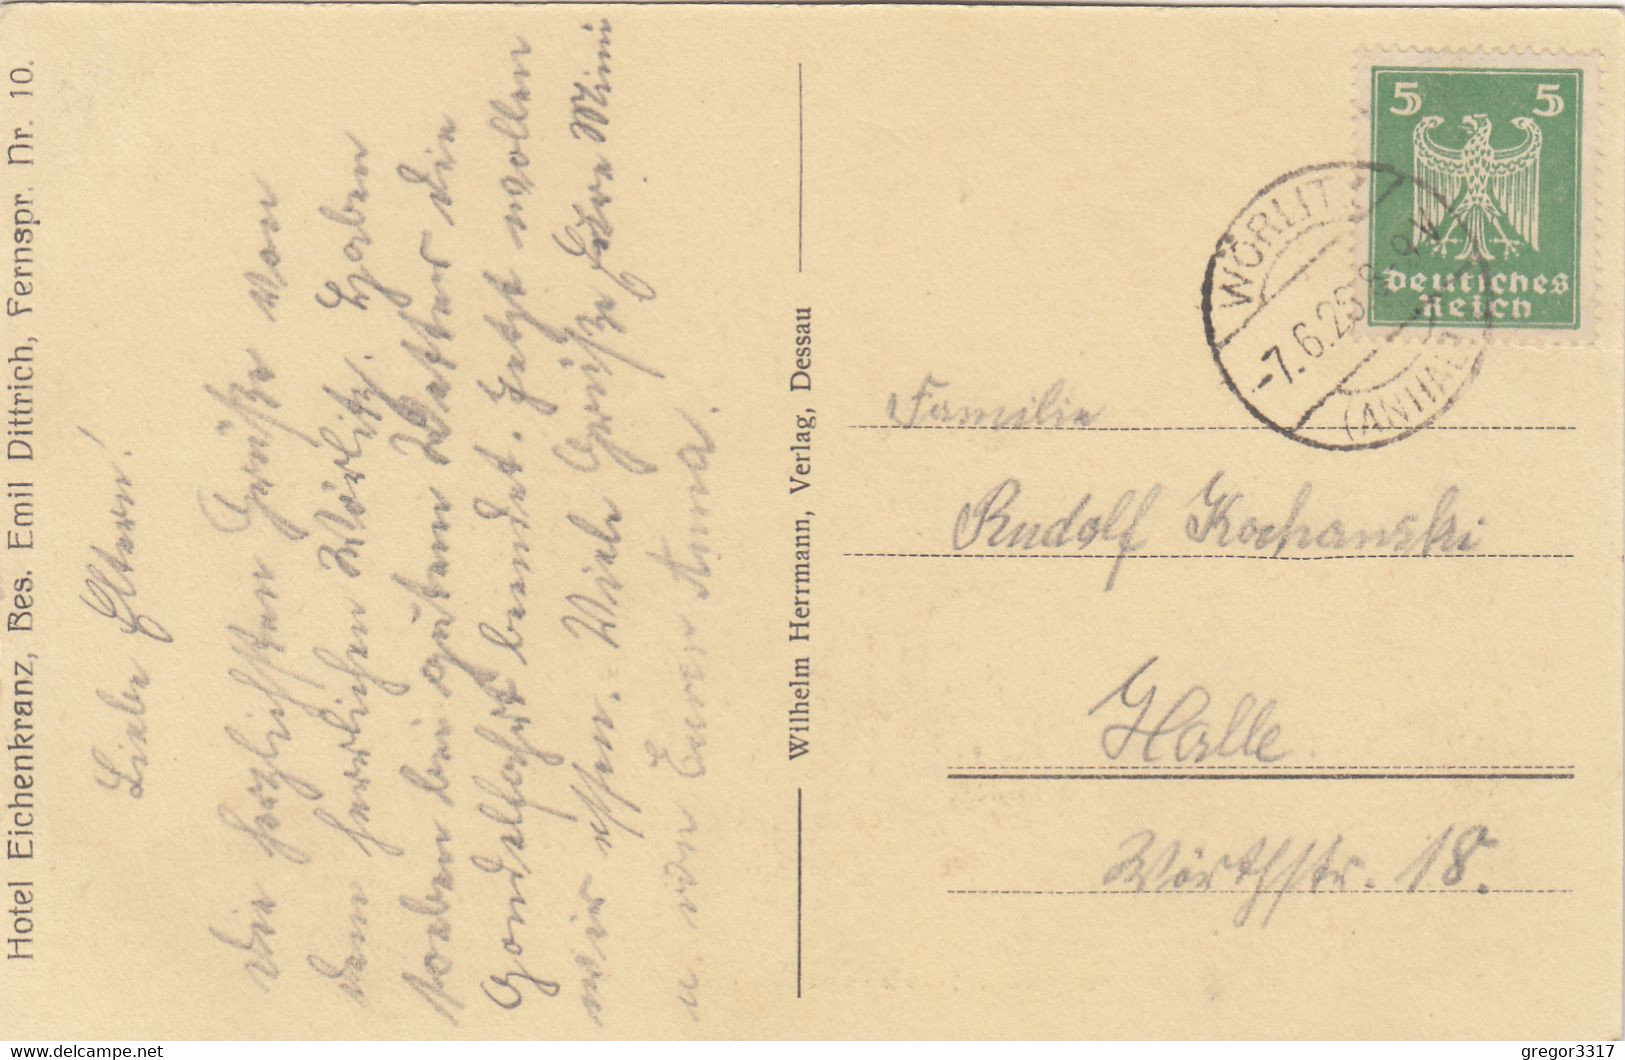 Hotel Eichenkranz, Bes. Emil Dittrich, Fernspr. Nr. 10.
Liebe Eltern!
Die herzlichsten Grüße von
dem herrlichen Wörlitz. Haben
soeben bei gutem Wetter die
Gondelfahrt beendet. Jetzt wollen
wir essen. Viele Grüße Eure Mimi
u. von Eurer Anna.
Wilhelm Herrmann, Verlag, Dessau
5 5
Deutsches
Reich
WÖRLITZ
-7.6.25 8-9V
(ANHALT)
Familie
Rudolf Kochanski
Halle
Wörthstr. 18.
gregor3317
www.delcampe.net